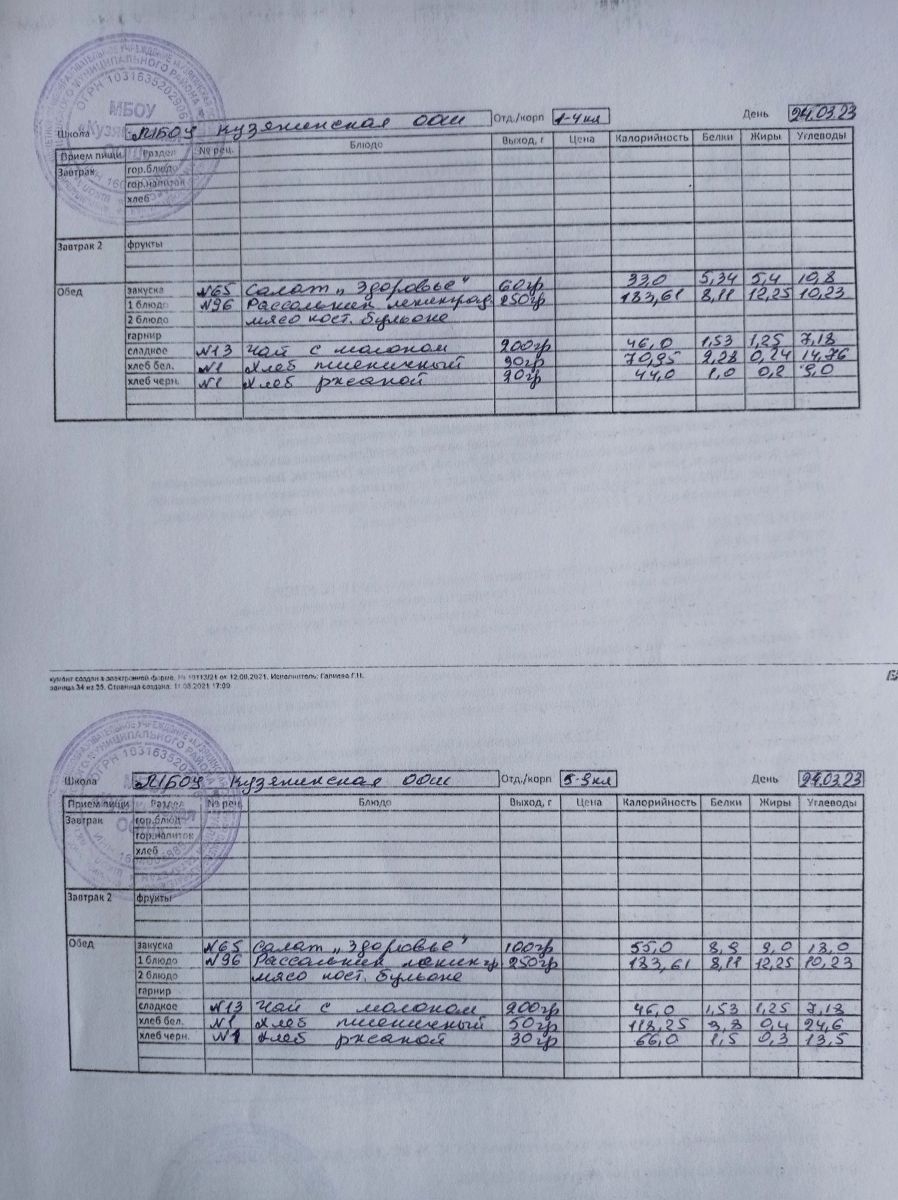 МБОУ
Школа МБОУ Кузякинская ООШ Отд./корп 1-4 кл День 24.03.23
Прием пищи Раздел № рец. Блюдо Выход, г Цена Калорийность Белки Жиры Углеводы
Завтрак гор.блюдо
гор.напиток
хлеб
Завтрак 2 фрукты
Обед закуска №65 Салат "Здоровье" 60гр 33,0 5,34 5,4 10,8
1 блюдо №96 Рассольник ленинград. 250гр 183,61 8,11 12,25 10,23
2 блюдо мясо кост. бульоне
гарнир
сладкое №13 Чай с молоком 200гр 46,0 1,53 1,25 7,18
хлеб бел. №1 Хлеб пшеничный 30гр 70,95 2,28 0,24 14,76
хлеб черн. №1 Хлеб ржаной 20гр 44,0 1,0 0,2 9,0
кумент создан в электронной форме. № 10113/21 от 12.08.2021. Исполнитель: Галиева Г.Н.
раница 34 из 35. Страница создана: 11.08.2021 17:09
Школа МБОУ Кузякинская ООШ Отд./корп 5-9 кл День 24.03.23
Прием пищи Раздел № рец. Блюдо Выход, г Цена Калорийность Белки Жиры Углеводы
Завтрак гор.блюдо
гор.напиток
хлеб
Завтрак 2 фрукты
Обед закуска №65 Салат "Здоровье" 100гр 55,0 8,9 9,0 18,0
1 блюдо №96 Рассольник ленингр 250гр 183,61 8,11 12,25 10,23
2 блюдо мясо кост. бульоне
гарнир
сладкое №13 Чай с молоком 200гр 46,0 1,53 1,25 7,18
хлеб бел. №1 Хлеб пшеничный 50гр 118,25 3,8 0,4 24,6
хлеб черн. №1 Хлеб ржаной 30гр 66,0 1,5 0,3 13,5